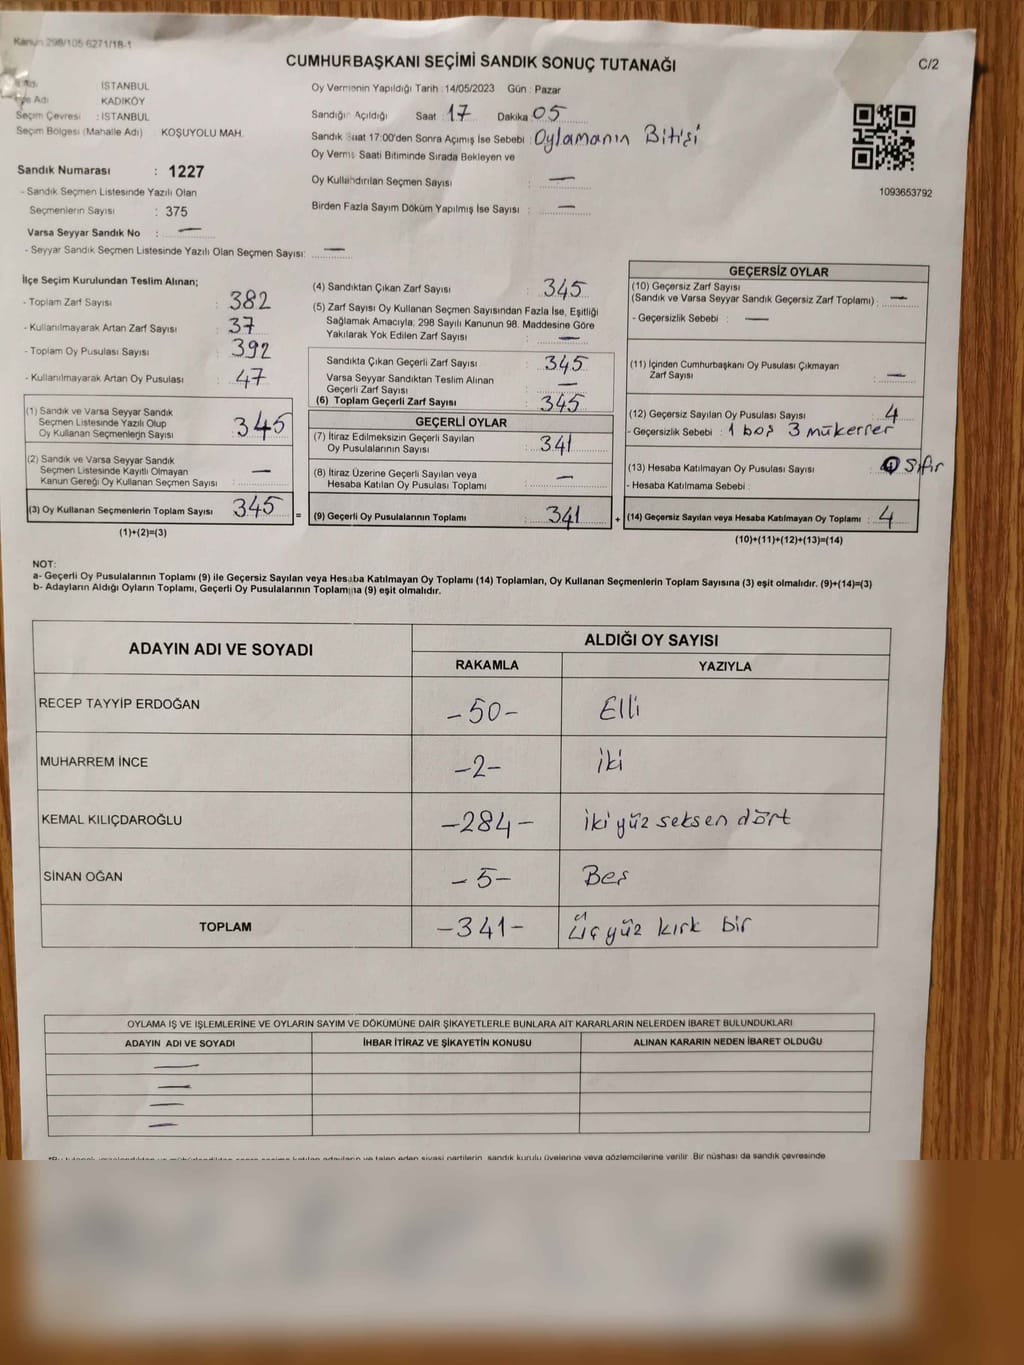 Kanun 298/105 6271/18-1
CUMHURBAŞKANI SEÇİMİ SANDIK SONUÇ TUTANAĞI
C/2
Adı İSTANBUL
Adı KADIKÖY
Seçim Çevresi : İSTANBUL
Seçim Bölgesi (Mahalle Adı) : KOŞUYOLU MAH.
Sandık Numarası : 1227
- Sandık Seçmen Listesinde Yazılı Olan
Seçmenlerin Sayısı : 375
Varsa Seyyar Sandık No : —
- Seyyar Sandık Seçmen Listesinde Yazılı Olan Seçmen Sayısı: —
Oy Vermenin Yapıldığı Tarih : 14/05/2023 Gün : Pazar
Sandığın Açıldığı Saat : 17 Dakika : 05
Sandık Saat 17:00'den Sonra Açılmış İse Sebebi : Oylamanın Bitişi
Oy Verme Saati Bitiminde Sırada Bekleyen ve
Oy Kullandırılan Seçmen Sayısı : —
Birden Fazla Sayım Döküm Yapılmış İse Sayısı : —
1093653792
İlçe Seçim Kurulundan Teslim Alınan;
- Toplam Zarf Sayısı : 382
- Kullanılmayarak Artan Zarf Sayısı : 37
- Toplam Oy Pusulası Sayısı : 392
- Kullanılmayarak Artan Oy Pusulası : 47
(1) Sandık ve Varsa Seyyar Sandık
Seçmen Listesinde Yazılı Olup
Oy Kullanan Seçmenlerin Sayısı : 345
(2) Sandık ve Varsa Seyyar Sandık
Seçmen Listesinde Kayıtlı Olmayan
Kanun Gereği Oy Kullanan Seçmen Sayısı : —
(3) Oy Kullanan Seçmenlerin Toplam Sayısı : 345
(1)+(2)=(3)
(4) Sandıktan Çıkan Zarf Sayısı : 345
(5) Zarf Sayısı Oy Kullanan Seçmen Sayısından Fazla İse, Eşitliği
Sağlamak Amacıyla; 298 Sayılı Kanunun 98. Maddesine Göre
Yakılarak Yok Edilen Zarf Sayısı : —
Sandıkta Çıkan Geçerli Zarf Sayısı : 345
Varsa Seyyar Sandıktan Teslim Alınan
Geçerli Zarf Sayısı : —
(6) Toplam Geçerli Zarf Sayısı : 345
GEÇERLİ OYLAR
(7) İtiraz Edilmeksizin Geçerli Sayılan
Oy Pusulalarının Sayısı : 341
(8) İtiraz Üzerine Geçerli Sayılan veya
Hesaba Katılan Oy Pusulası Toplamı : —
= (9) Geçerli Oy Pusulalarının Toplamı : 341
GEÇERSİZ OYLAR
(10) Geçersiz Zarf Sayısı
(Sandık ve Varsa Seyyar Sandık Geçersiz Zarf Toplamı) : —
- Geçersizlik Sebebi : —
(11) İçinden Cumhurbaşkanı Oy Pusulası Çıkmayan
Zarf Sayısı : —
(12) Geçersiz Sayılan Oy Pusulası Sayısı : 4
- Geçersizlik Sebebi : 1 boş 3 mükerrer
(13) Hesaba Katılmayan Oy Pusulası Sayısı : sıfır
- Hesaba Katılmama Sebebi :
+ (14) Geçersiz Sayılan veya Hesaba Katılmayan Oy Toplamı : 4
(10)+(11)+(12)+(13)=(14)
NOT:
a- Geçerli Oy Pusulalarının Toplamı (9) ile Geçersiz Sayılan veya Hesaba Katılmayan Oy Toplamı (14) Toplamları, Oy Kullanan Seçmenlerin Toplam Sayısına (3) eşit olmalıdır. (9)+(14)=(3)
b- Adayların Aldığı Oyların Toplamı, Geçerli Oy Pusulalarının Toplamına (9) eşit olmalıdır.
ADAYIN ADI VE SOYADI
ALDIĞI OY SAYISI
RAKAMLA YAZIYLA
RECEP TAYYİP ERDOĞAN -50- Elli
MUHARREM İNCE -2- iki
KEMAL KILIÇDAROĞLU -284- iki yüz seksen dört
SİNAN OĞAN -5- Beş
TOPLAM -341- Üç yüz kırk bir
OYLAMA İŞ VE İŞLEMLERİNE VE OYLARIN SAYIM VE DÖKÜMÜNE DAİR ŞİKAYETLERLE BUNLARA AİT KARARLARIN NELERDEN İBARET BULUNDUKLARI
ADAYIN ADI VE SOYADI İHBAR İTİRAZ VE ŞİKAYETİN KONUSU ALINAN KARARIN NEDEN İBARET OLDUĞU
—
—
—
—
sandık kurulu üyelerine veya gözlemcilerine verilir. Bir nüshası da sandık çevresinde